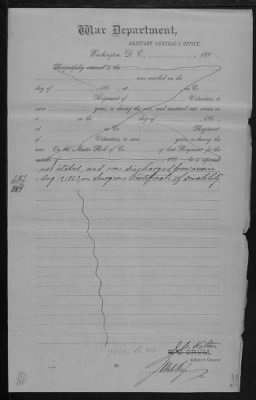 War Department,
ADJUTANT GENERAL'S OFFICE,
Washington, D. C., 188
Respectfully returned to the
was enrolled on the
day of , 186 , at , in Co.
Regiment of Volunteers, to serve
years, or during the war, and mustered into service as
a on the day of , 186 ,
at , in Co. Regiment
of Volunteers, to serve years, or during the
war. On the Muster Roll of Co. of that Regiment for the
months of , 186 , he is reported
not stated, and was discharged from service
Aug 12 1862, on Surgeons Certificate of Disability.
R. C. DRUM,
Adjutant General